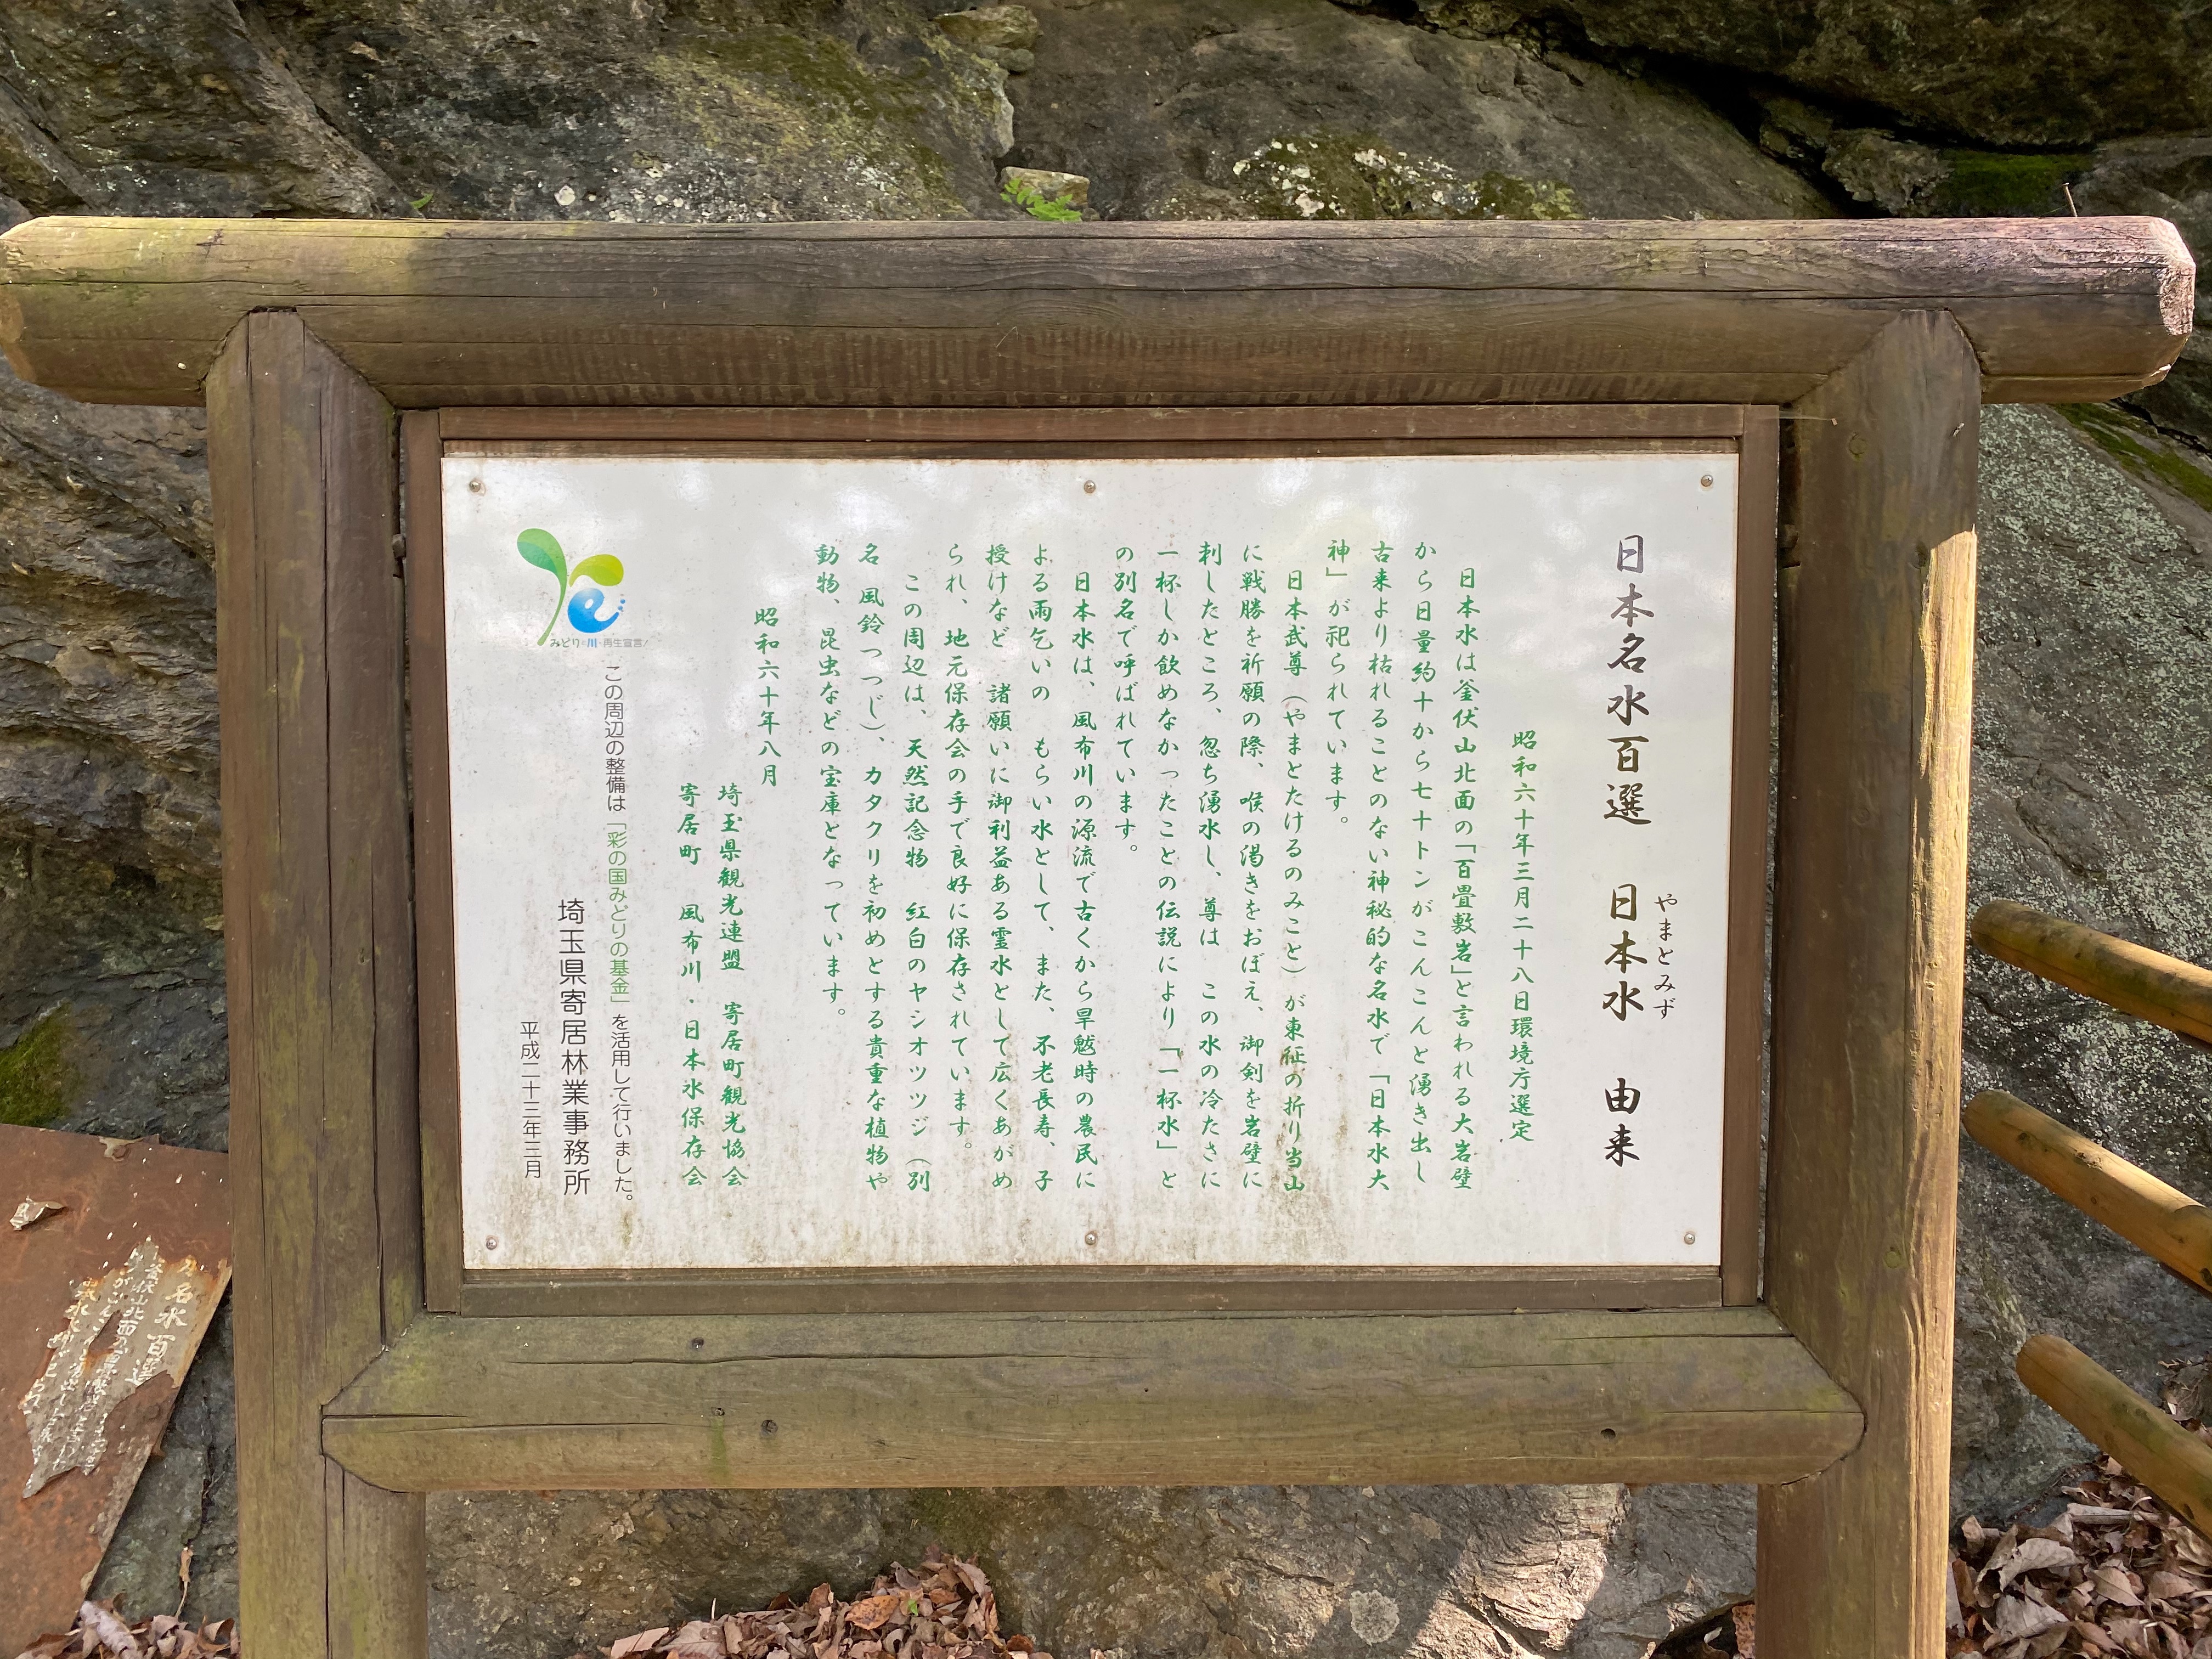 日本名水百選　日本水　由来
やまとみず
昭和六十年三月二十八日環境庁選定
日本水は釜伏山北面の「百畳敷岩」と言われる大岩壁
から日量約十から七十トンがこんこんと湧き出し
古来より枯れることのない神秘的な名水で「日本水大
神」が祀られています。
日本武尊（やまとたけるのみこと）が東征の折り当山
に戦勝を祈願の際、喉の渇きをおぼえ、御剣を岩壁に
刺したところ、忽ち湧水し、尊は　この水の冷たさに
一杯しか飲めなかったことの伝説により「一杯水」と
の別名で呼ばれています。
日本水は、風布川の源流で古くから旱魃時の農民に
よる雨乞いの　もらい水として、また、不老長寿、子
授けなど　諸願いに御利益ある霊水として広くあがめ
られ、地元保存会の手で良好に保存されています。
この周辺は、天然記念物　紅白のヤシオツツジ（別
名 風鈴つつじ）、カタクリを初めとする貴重な植物や
動物、昆虫などの宝庫となっています。
昭和六十年八月
埼玉県観光連盟　寄居町観光協会
寄居町　風布川・日本水保存会
みどりと川の再生宣言！
この周辺の整備は「彩の国みどりの基金」を活用して行いました。
埼玉県寄居林業事務所
平成二十三年三月
名水百選
釜伏山北面の